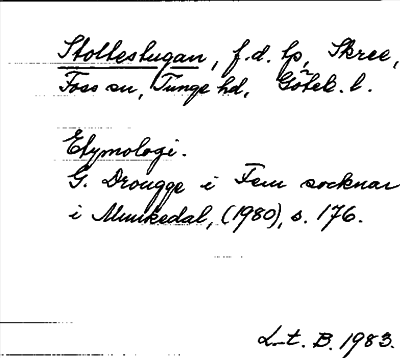 Stoltestugan, f.d. lp, Skree,
Foss sn, Tunge hd, Göteb. l.
Etymologi.
G. Drougge i Fem socknar
i Munkedal, (1980), s. 176.
L-t. B. 1983.